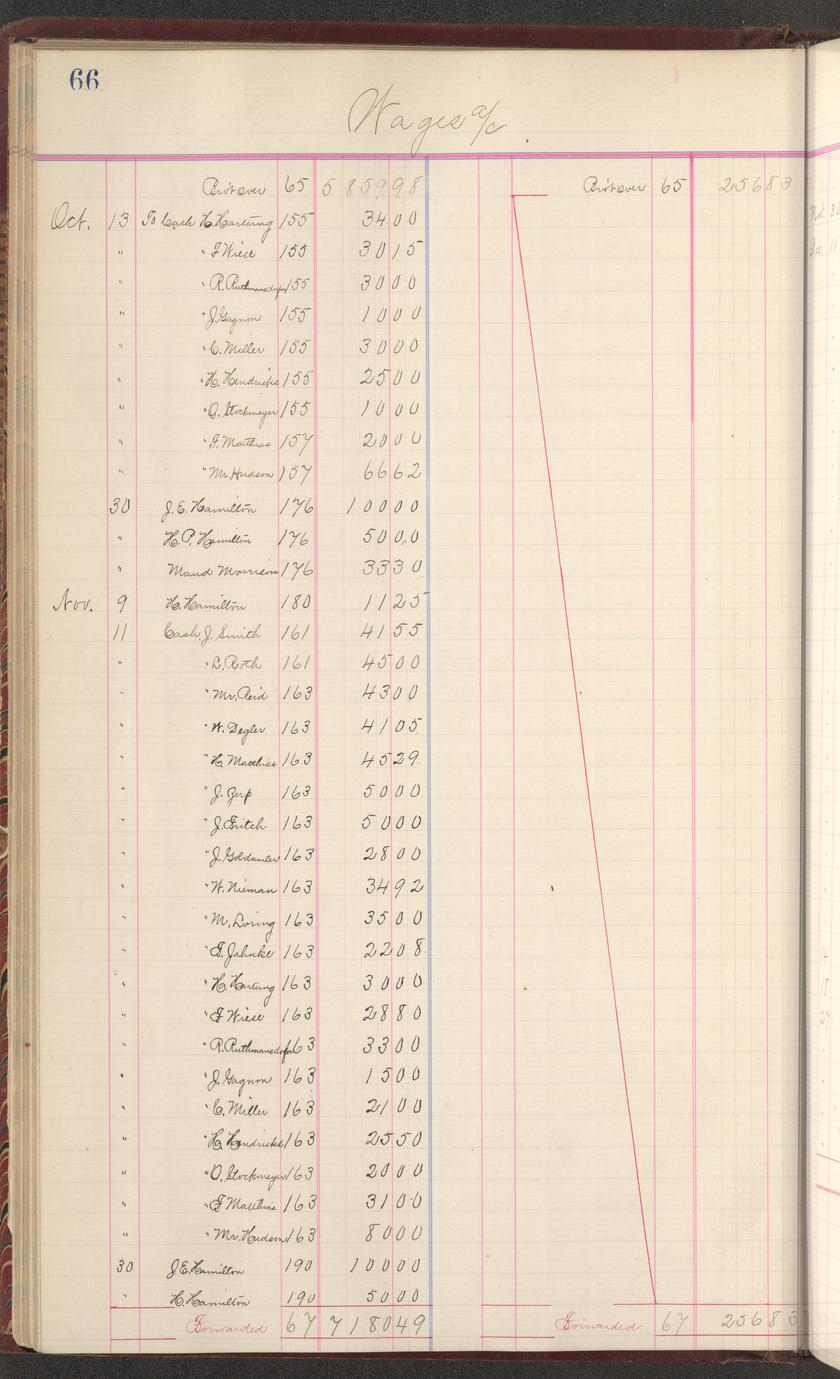 66
Wages a/c
Bro't over 65 5 859 98 Bro't over 65 256 83
Oct. 13 To Cash H. Hartung 155 34 00
" " F Wiese 155 30 15
" " R. Ruthmansdofer 155 30 00
" " J. Gagnon 155 10 00
" " C. Miller 155 30 00
" " H. Hendricks 155 25 00
" " O. Stockmeyer 155 10 00
" " F. Matthias 157 20 00
" " Mr. Hudson 157 66 62
30 J. E. Hamilton 176 100 00
" H. P. Hamilton 176 50 00
" Maud Morrison 176 33 30
Nov. 9 H. Hamilton 180 11 25
11 Cash, J. Smith 161 41 55
" " L. Roth 161 45 00
" " Mr. Reid 163 43 00
" " W. Degler 163 41 05
" " H. Matthias 163 45 29
" " J. Gerp 163 50 00
" " J. Fritch 163 50 00
" " J. Goldamler 163 28 00
" " W. Nieman 163 34 92
" " M. Loring 163 35 00
" " F. Jahnke 163 22 08
" " H. Hartung 163 30 00
" " F Wiese 163 28 80
" " R. Ruthmansdofer 163 33 00
" " J. Gagnon 163 15 00
" " C. Miller 163 21 00
" " H. Hendricks 163 25 50
" " O. Stockmeyer 163 20 00
" " F Matthias 163 31 00
" " Mr. Hudson 163 80 00
30 J. E. Hamilton 190 100 00
" H. Hamilton 190 50 00
Forwarded 67 7 180 49 Forwarded 67 256 83